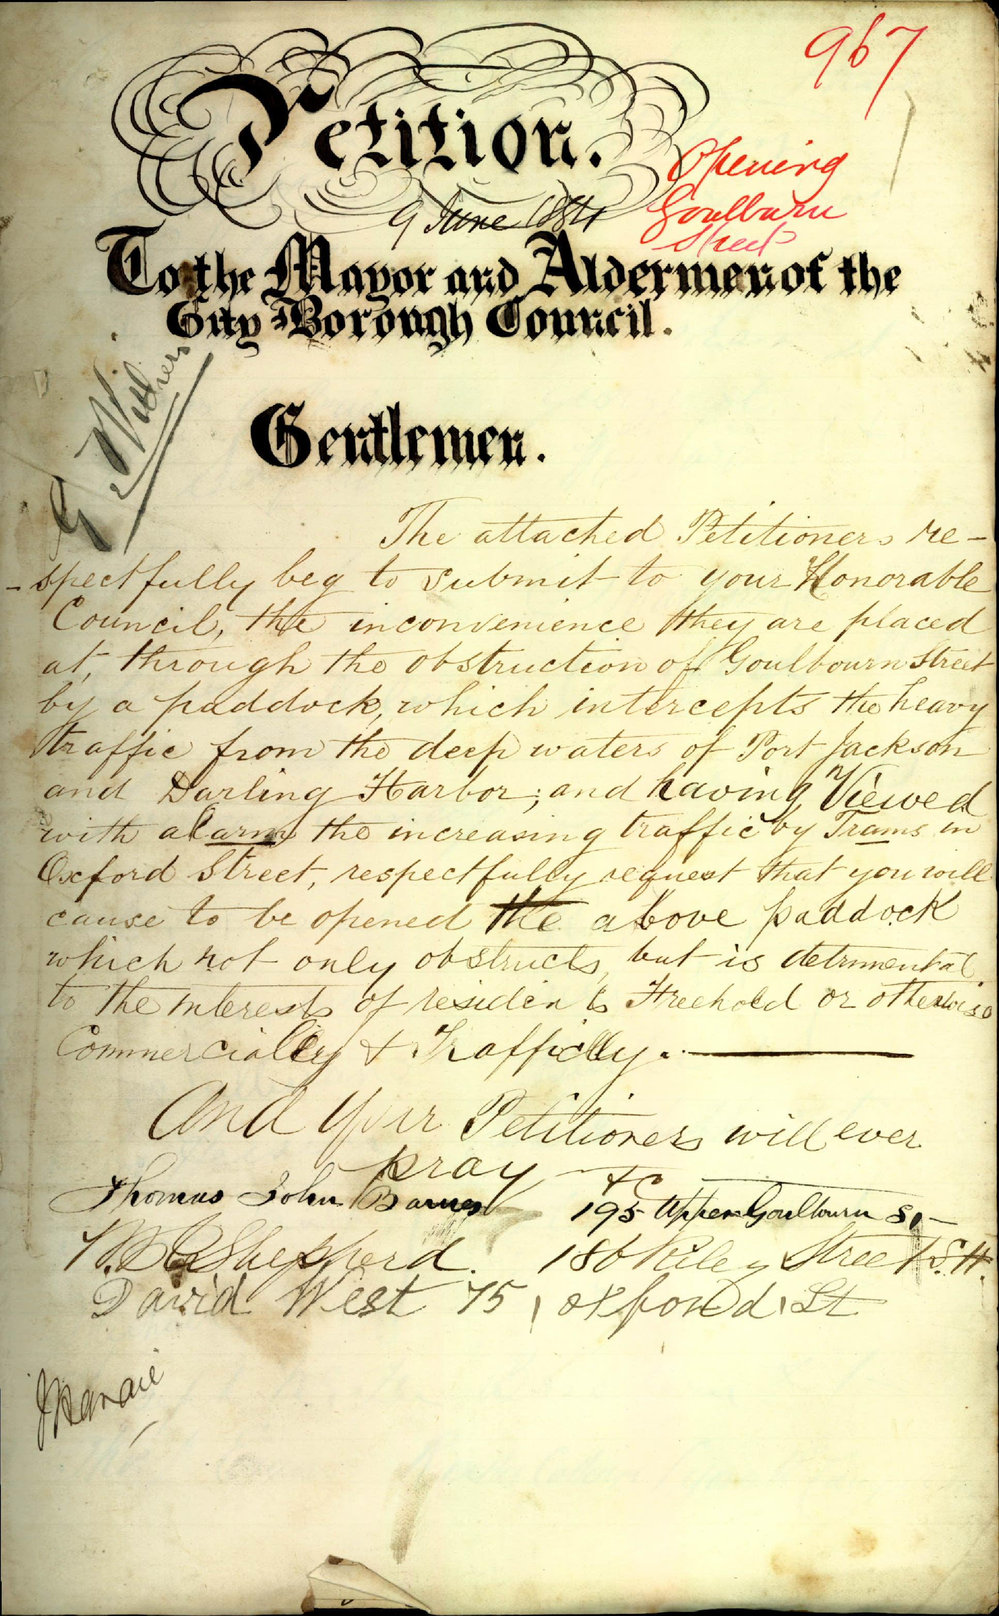 967
Petition.
Opening
Goulburn
Street
9 June 1884
To the Mayor and Aldermen of the
City Borough Council.
Gentlemen.
The attached Petitioners re-
-spectfully beg to submit to your Honorable
Council, the inconvenience they are placed
at, through the obstruction of Goulbourn Street
by a paddock, which intercepts the heavy
traffic from the deep waters of Port Jackson
and Darling Harbor; and having Viewed
with alarm the increasing traffic by Trams in
Oxford Street, respectfully request that you will
cause to be opened the above paddock
which not only obstructs, but is detrimental
to the Interests of residents Freehold or otherwise
Commercially & Trafficlly.
And Your Petitioners will ever
pray &c
Thomas John Barnes 195 Upper Goulburn St
Shepperd. 186 Riley Street S.H.
David West 75, oxford, St